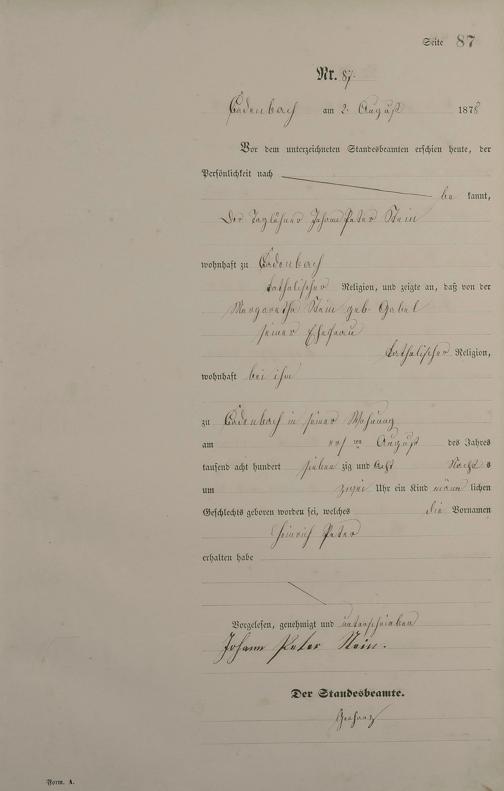 Seite 87
Nr. 87.
Cadenbach am 2. August 1878
Vor dem unterzeichneten Standesbeamten erschien heute, der
Persönlichkeit nach
be kannt,
der Taglöhner Johann Peter Stein
wohnhaft zu Cadenbach
katholischer Religion, und zeigte an, daß von der
Margaretha Stein geb. Gabel
seiner Ehefrau
katholischer Religion,
wohnhaft bei ihm
zu Cadenbach in seiner Wohnung
am ersten August des Jahres
tausend acht hundert sieben zig und acht Nachts
um zwei Uhr ein Kind männ lichen
Geschlechts geboren worden sei, welches die Vornamen
Heinrich Peter
erhalten habe
Vorgelesen, genehmigt und unterschrieben
Johann Peter Stein.
Der Standesbeamte.
Form. A.